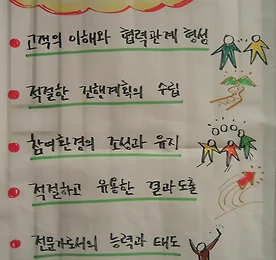 고객의 이해와 협력관계 형성
적절한 진행계획의 수립
참여환경의 조성과 유지
적절하고 유용한 결과도출
전문가로서의 능력과 태도